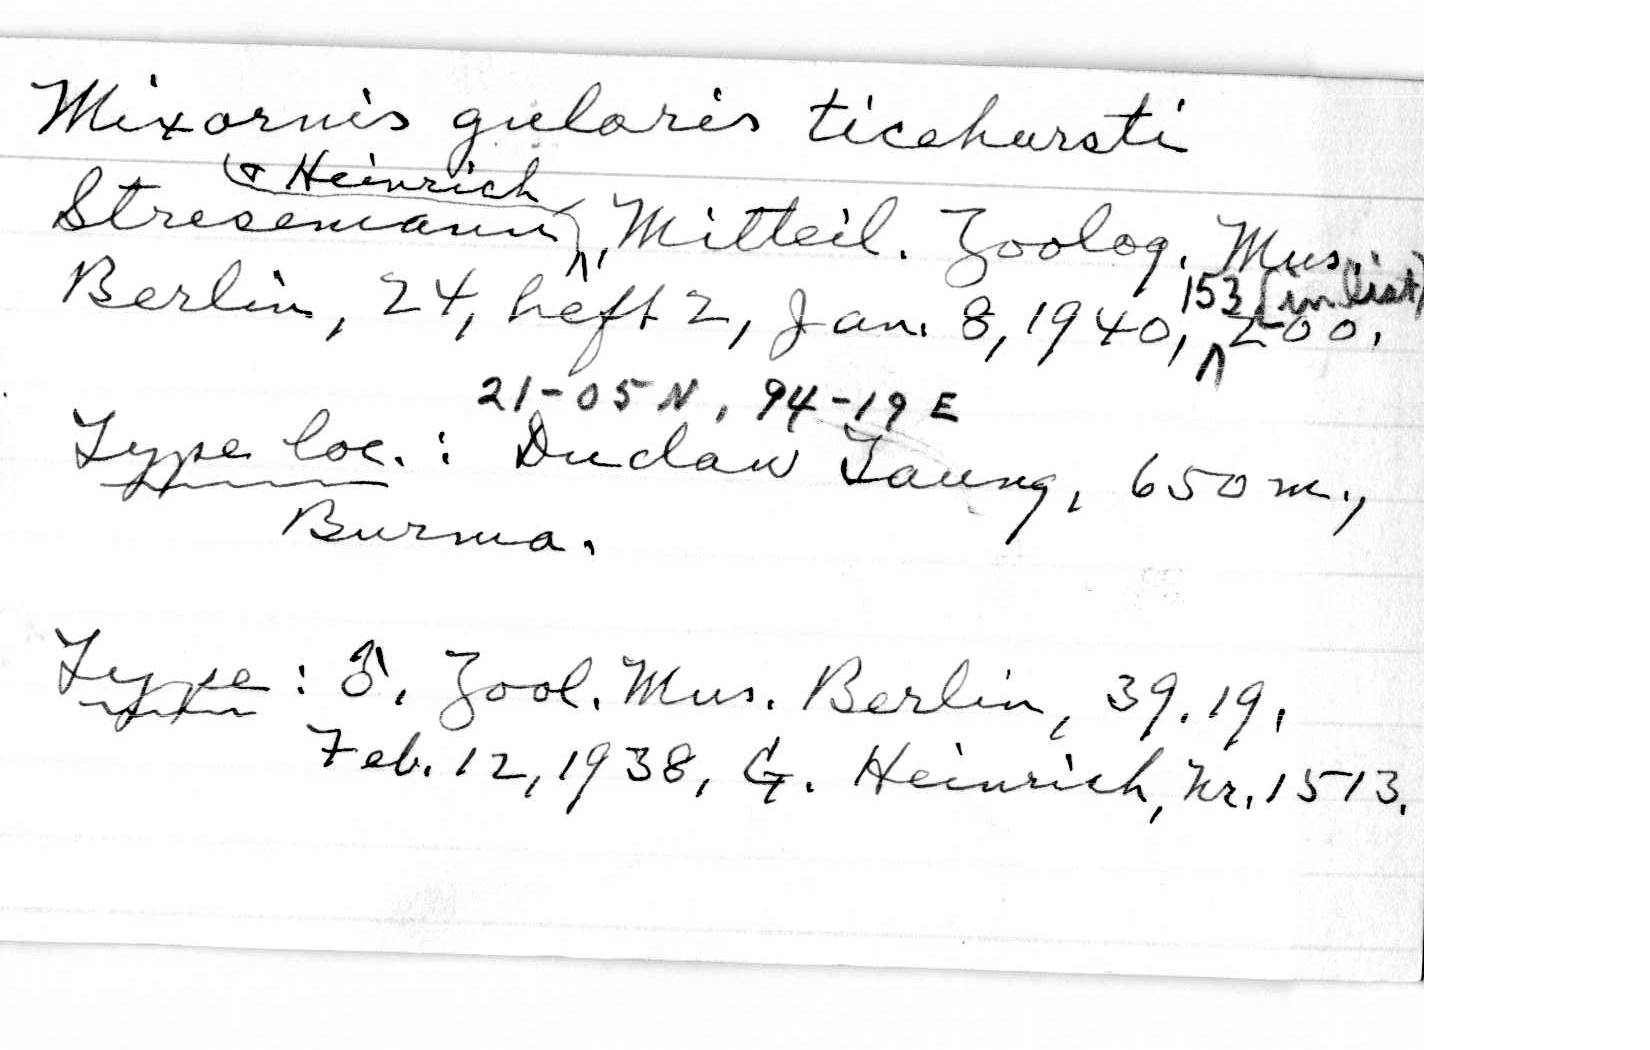 Mixornis gularis ticehursti
& Heinrich
Stresemann, Mitteil. Zoolog. Mus.
153 [in list]
Berlin, 24, heft 2, Jan. 8, 1940, 200.
21-05 N, 94-19 E
Type loc. : Dudaw Taung, 650 m.,
Burma.
Type : ♂. Zool. Mus. Berlin, 39.19.
Feb. 12, 1938, G. Heinrich, Nr. 1513.